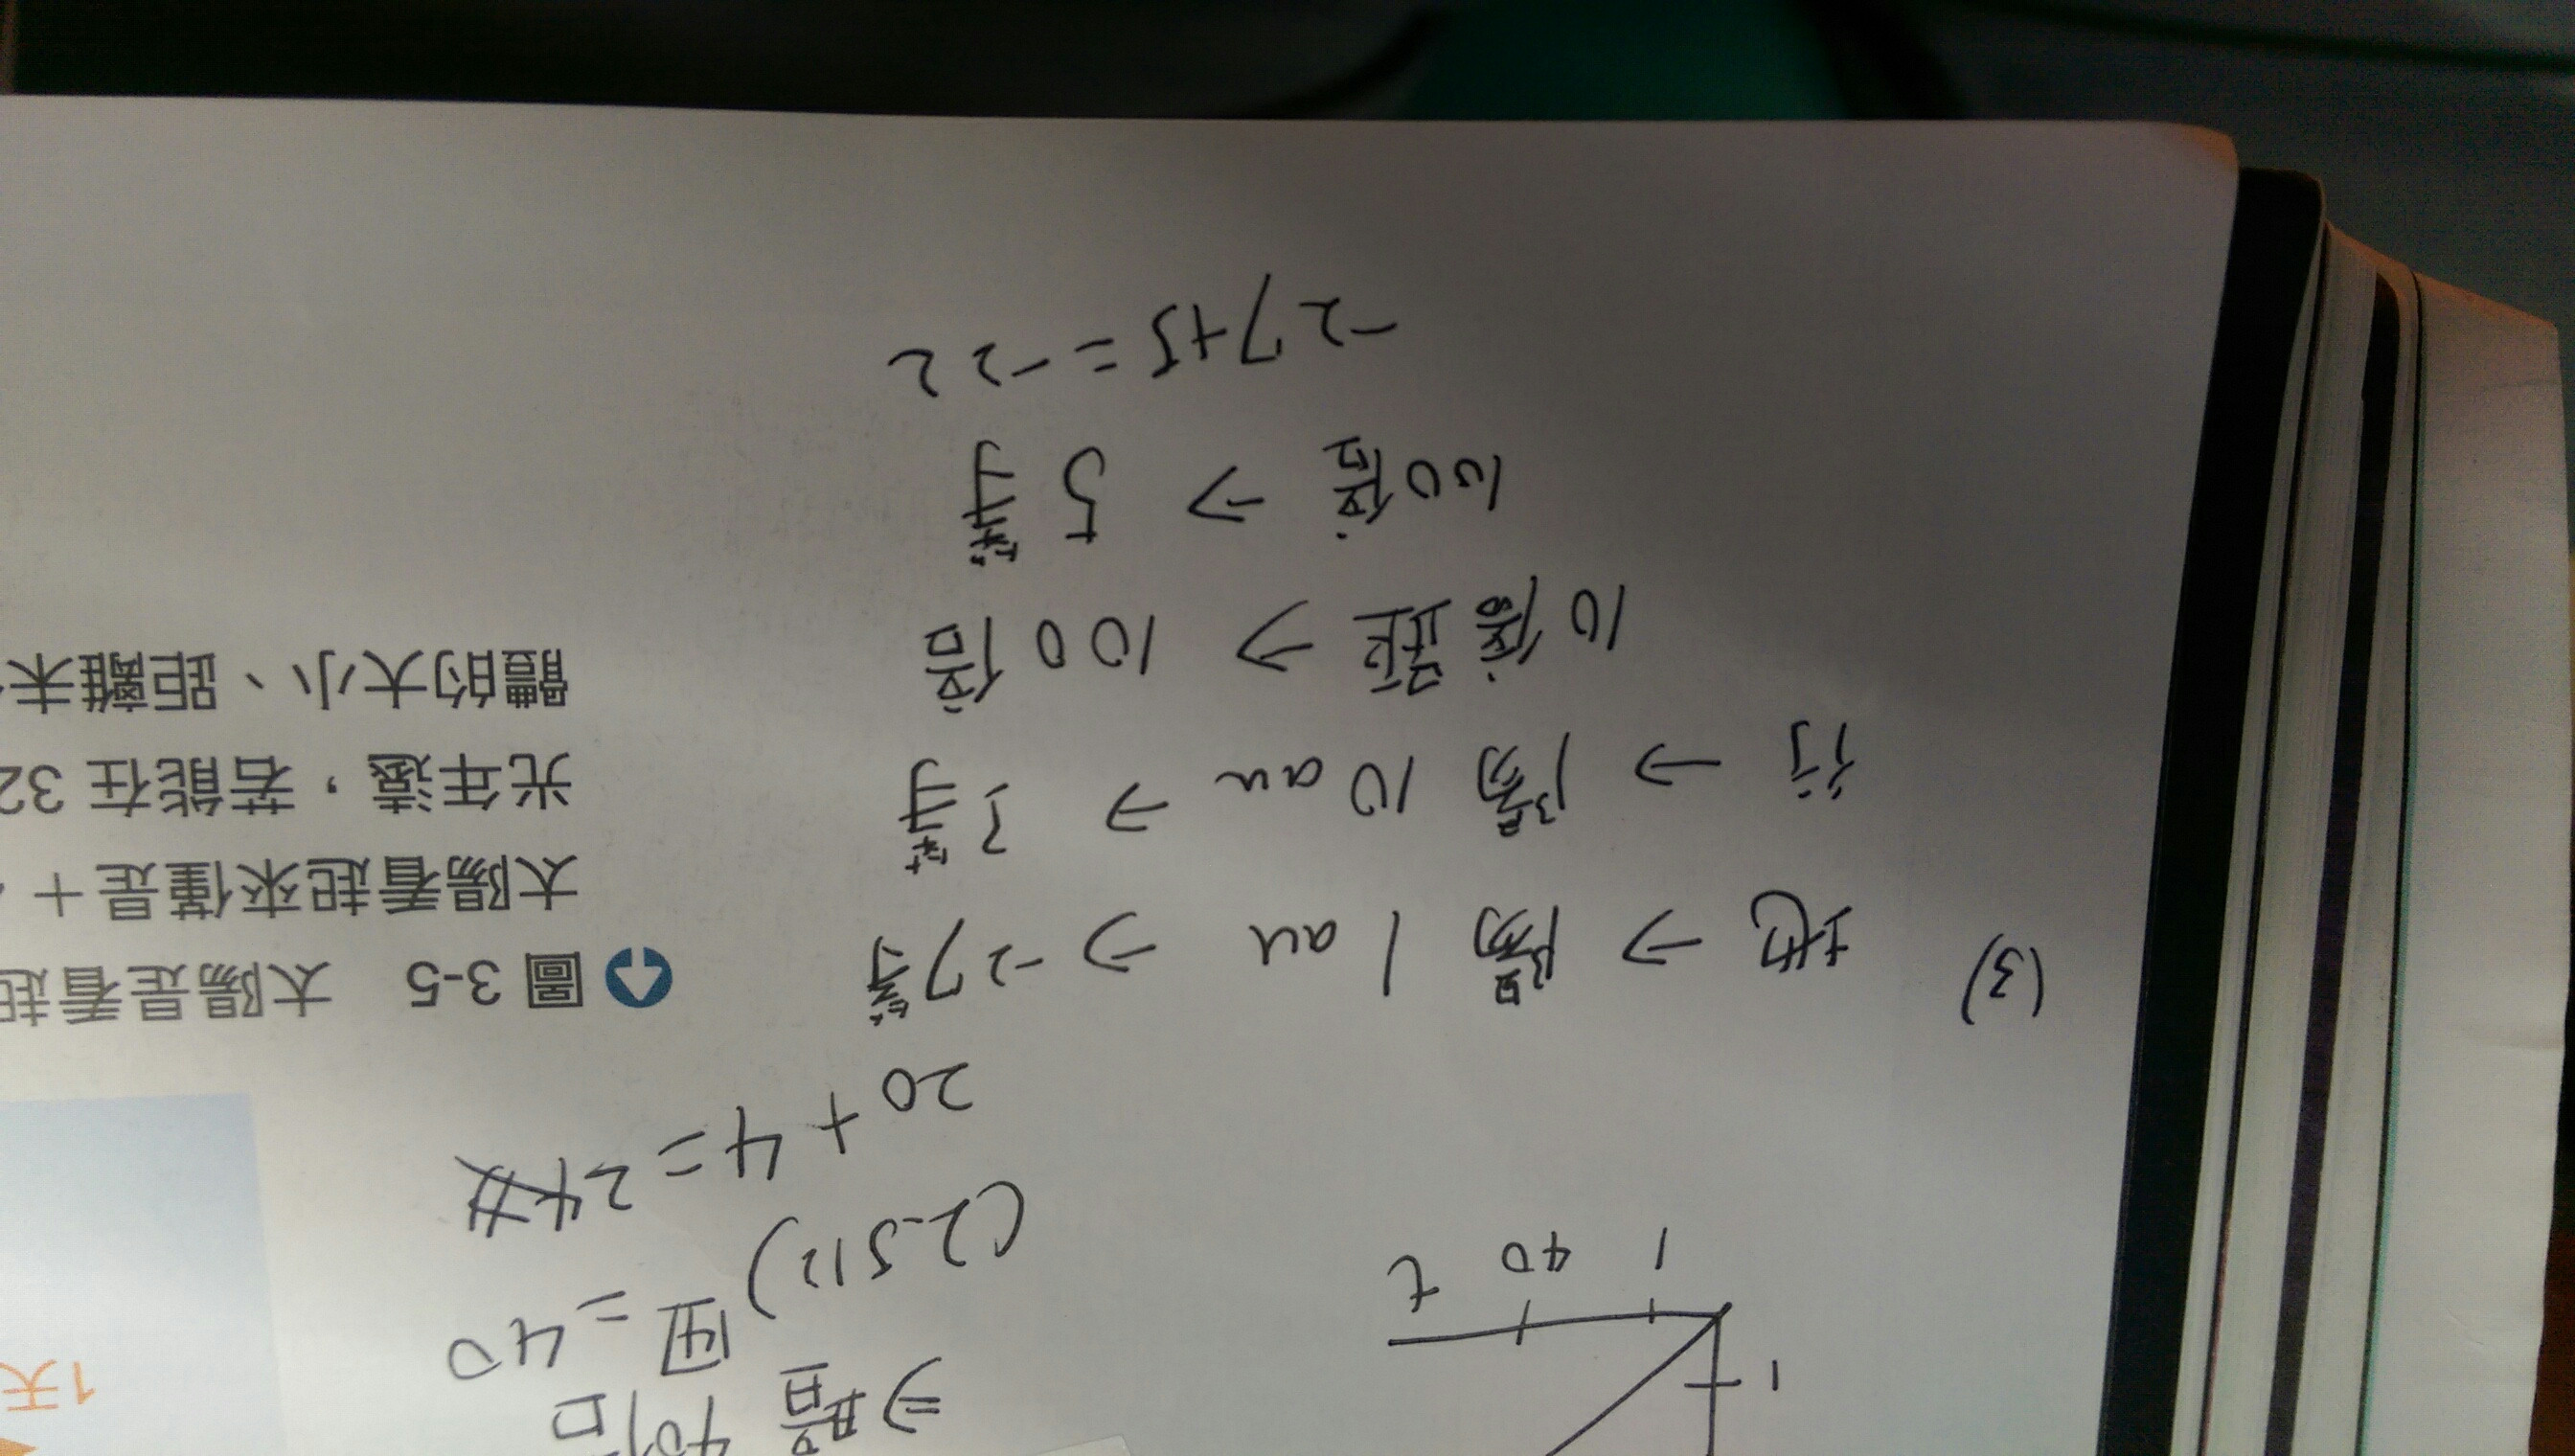 ⇒暗 40倍
(2.512)④ = 40
20 + 4 = 24等
1
1 40 t
(3) 地 → 陽 1 au → -27等
行 → 陽 10 au → ?等
10倍距 → 100倍
100倍 → 5等
-27+5 = -22
1天
圖 3-5 太陽是看起
太陽看起來僅是+
光年遠，若能在 32
體的大小、距離未